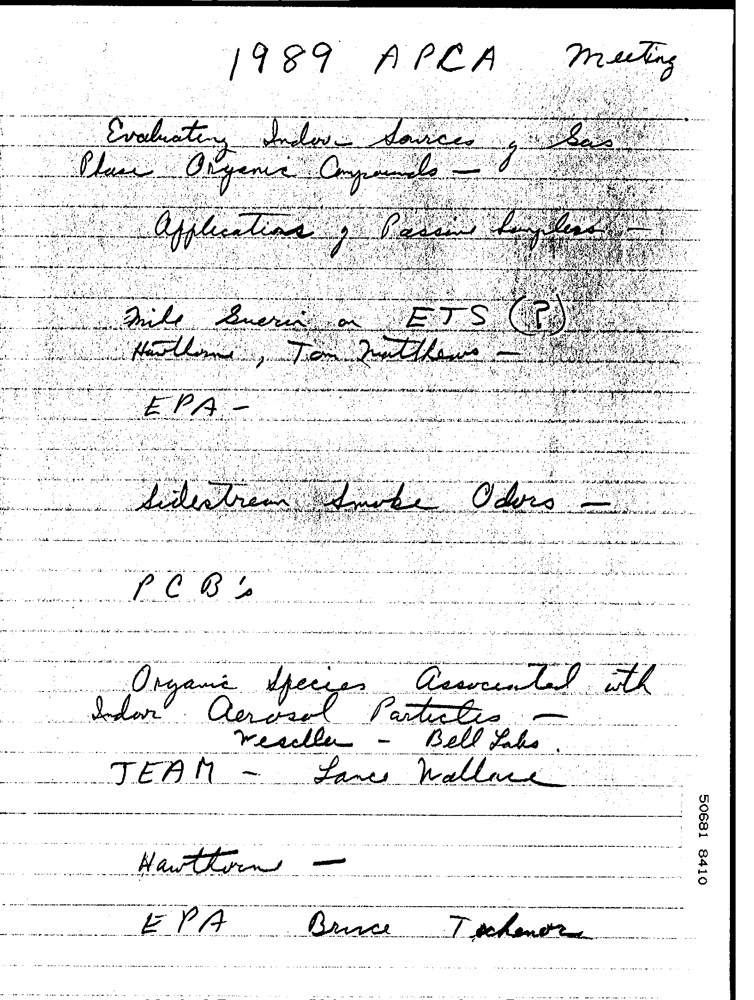 1989 APCA Meeting
Evaluating Indoor Sources of Gas
Phase Organic Compounds —
Applications of Passive Samplers —
Mike Guerin on ETS (?)
Hawthorne, Tom Matthews —
EPA —
Sidestream Smoke Odors —
PCB's
Organic Species Associated with
Indoor Aerosol Particles —
Weschler - Bell Labs.
TEAM - Lance Wallace
Hawthorne —
EPA Bruce
50681 8410